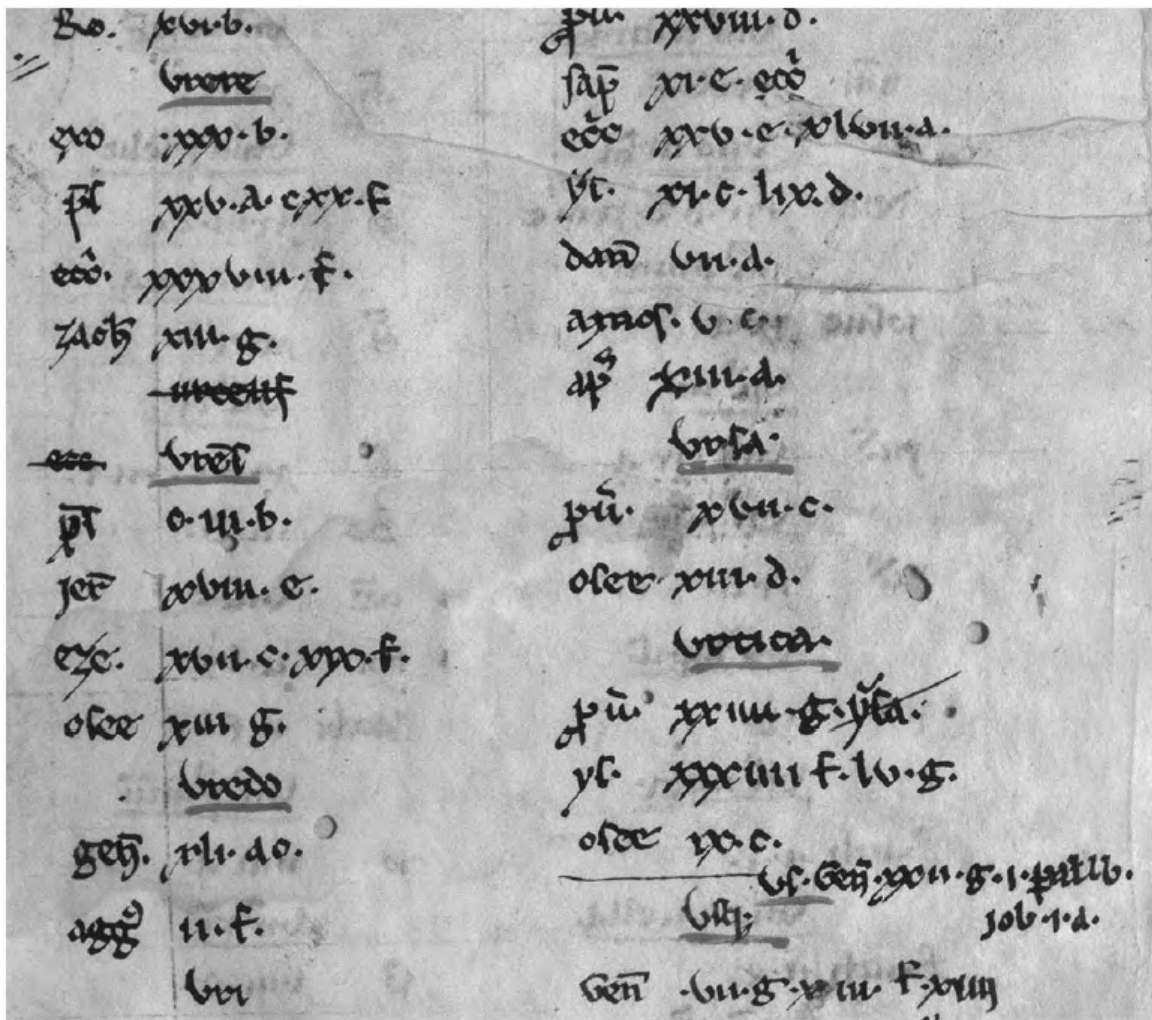 Ro. xvi·b.
urere
exo ·xxx·b.
p̄s xxv·a·cxx·f
ecc̄i. xxxviii·f.
zach xiii·g.
urens
p̄s c·iii·b.
jer̄ xviii·e.
eze. xvii·c·xix·f.
osee xiii·g.
uredo
gen̄. xli·ac.
agḡ ii·f.
uri
pū. xxviii·d.
sap̄ xi·e·
xxv·e·xlvii·a.
ys. xi·c·lix·d.
dan̄ vii·a.
amos. v·c.
ap̄ xiii·a.
ursa·
pū. xvii·c.
osee xiii·d.
urtica·
pū. xxiiii·g·
ys. xxxiiii f·lv·g.
osee ix·c.
us·Gen̄·xxii·g·i·
usq;
job·i·a.
Gen̄ ·vii·g·